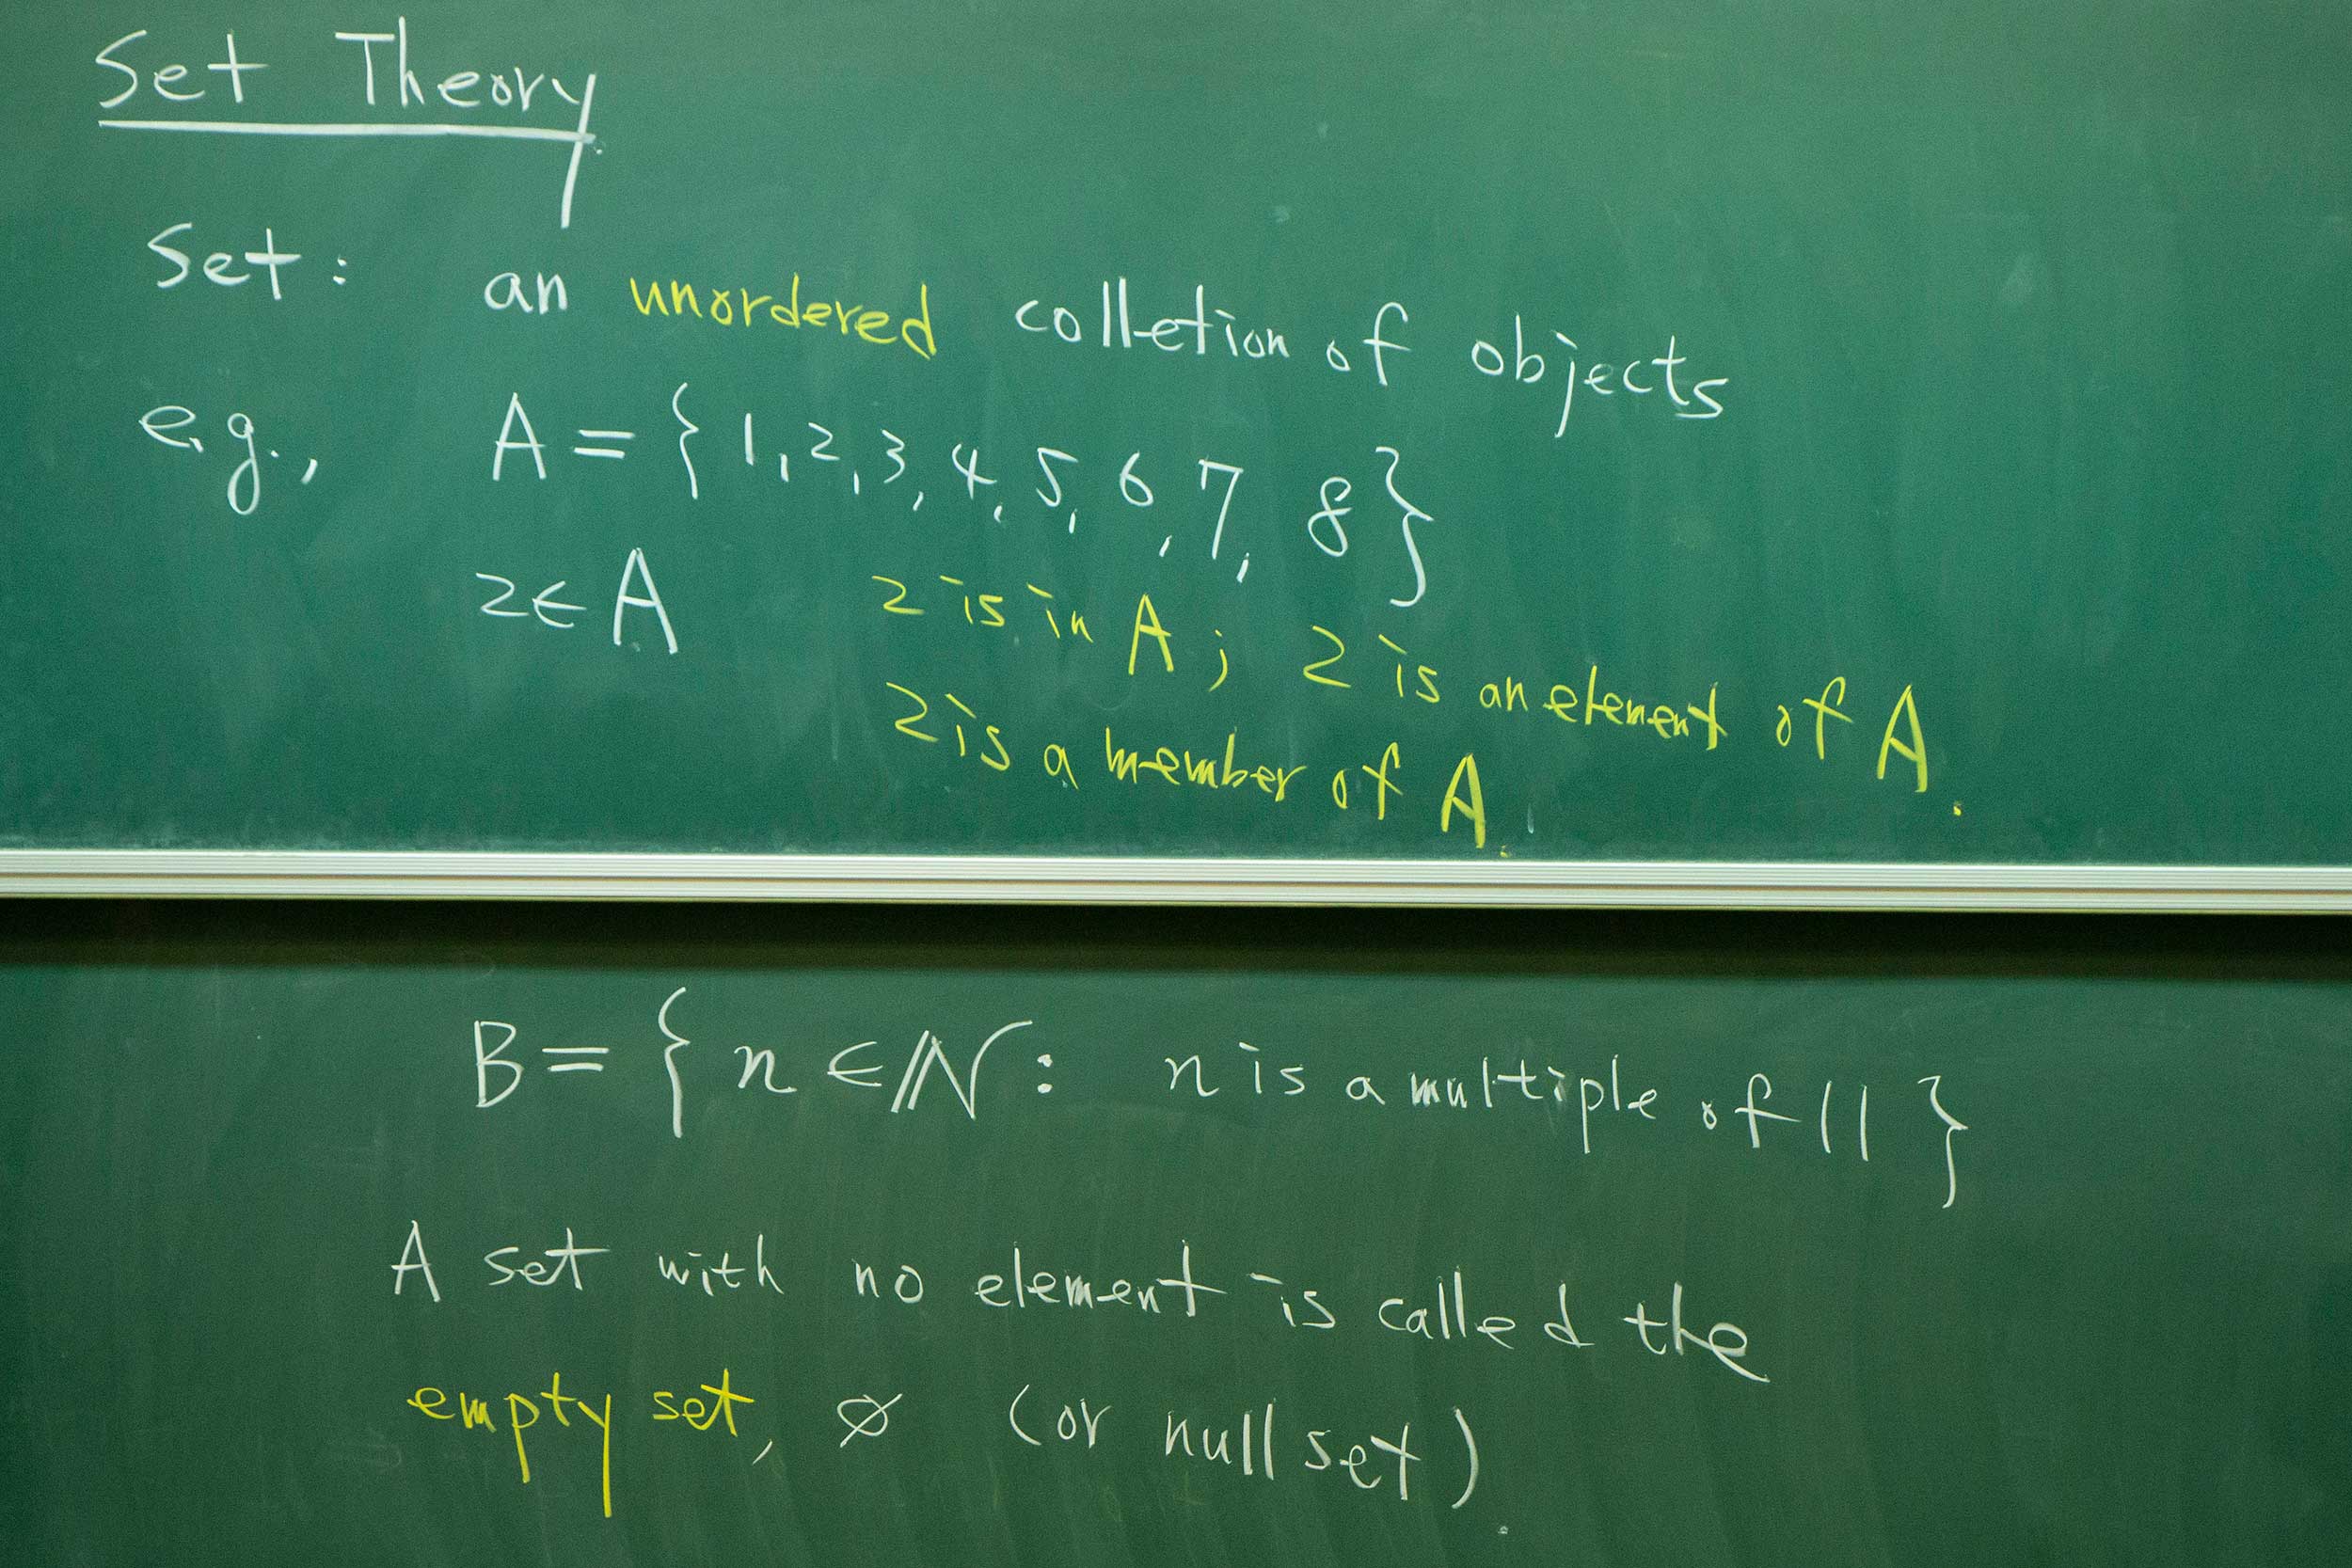 Set Theory
Set: an unordered colletion of objects
e.g., A = { 1, 2, 3, 4, 5, 6, 7, 8 }
2 ∈ A 2 is in A ; 2 is an element of A.
2 is a member of A.
B = { n ∈ ℕ : n is a multiple of 11 }
A set with no element is called the
empty set, ∅ (or null set).